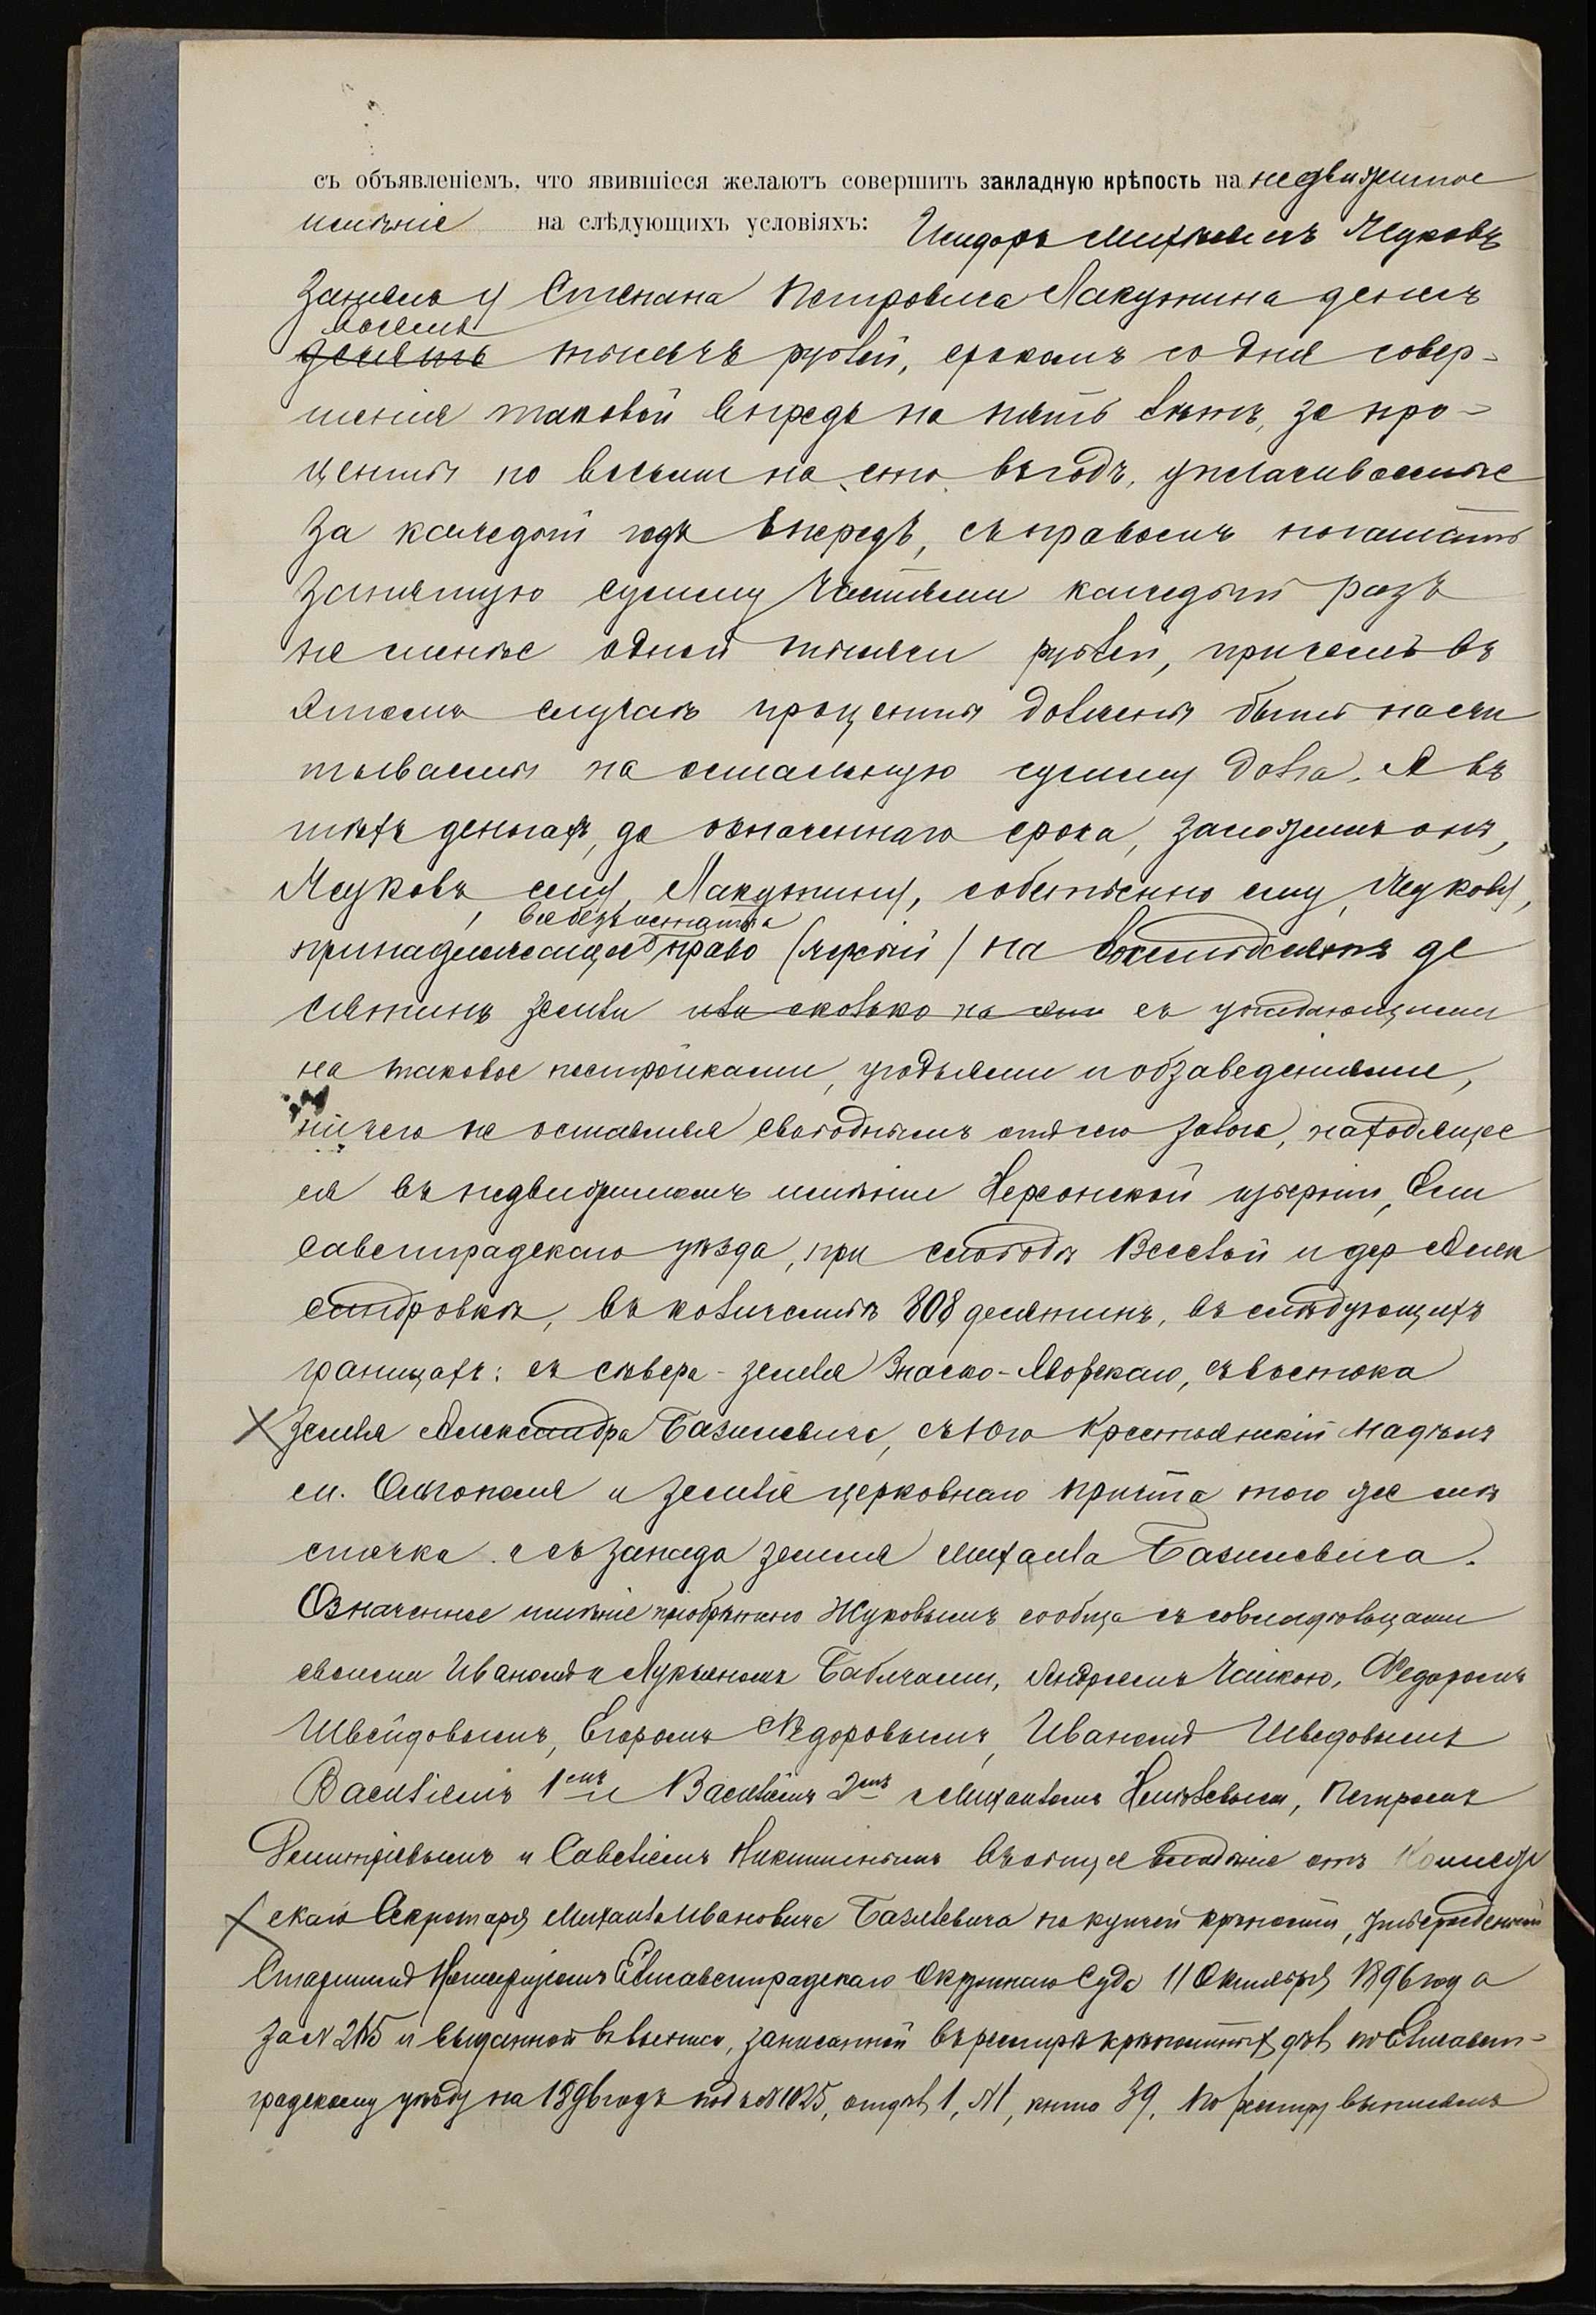 съ объявленіемъ, что явившіеся желаютъ совершить закладную крѣпость на недвижимое
имѣніе на слѣдующихъ условіяхъ: Исидоръ Жуковъ
занялъ у Степана Петровича Лакунина денегъ
восемь
десять тысячъ рублей, срокомъ со дня совер-
шенія таковой впредь на пять лѣтъ, за про-
центы по восьми на сто въ годъ, уплачиваемые
за каждый годъ впередъ, съ правомъ погашать
занятую сумму частями каждый разъ
не менѣе одной тысячи рублей, причемъ въ
этомъ случаѣ проценты должны быть насчи
тываемы на остальную сумму долга. А въ
тѣхъ деньгахъ, до означеннаго срока, заложилъ онъ,
Жуковъ, ему, Лакунину, собственно ему, Жукову,
все безъ изъятія
принадлежащее право (жребій) на восемьдесятъ де
сятинъ земли или сколько съ упадающими
на таковое постройками, угодьями и обзаведеніями,
ничего не оставляя свободнымъ отъ сего залога, находящее
ся въ недвижимомъ имѣніи Херсонской губерніи, Ели
саветградскаго уѣзда, при слободѣ Веселой и дер Алек
сандровкѣ, въ количествѣ 808 десятинъ, въ слѣдующихъ
границахъ: съ сѣвера - земля Знаско-Яворскаго, съ востока
земля Александра Базилевича, съ юго крестьянскій надѣлъ
м. Ольгополя и земля церковнаго причта того же мѣ
стечка и съ запада земля Михаила Базилевича.
Означенное имѣніе пріобрѣтено Жуковымъ сообща съ совладѣльцами
своими Иваномъ и Лукьяномъ Андреемъ Чайкою, Федоромъ
Швейдовымъ, Егоромъ Ѳедоровымъ, Иваномъ Шведовымъ
Василіемъ 1мъ и Василіемъ 2мъ и Михаиломъ Петромъ
Дмитріевымъ и Савеліемъ въ общее владѣніе отъ Коллеж
скаго Секретаря Михаила Ивановича Базилевича по купчей крѣпости, утвержденной
Старшимъ Нотаріусомъ Елисаветградскаго Окружнаго Суда 11 Октября 1896 года
за № 265 и выданной въ выписи, записанной въ реестрѣ крѣпостныхъ дѣлъ по Елисавет-
градскому уѣзду на 1896 годъ подъ № 1025, отдѣлъ 1, № 1, 39, по реестру выписямъ